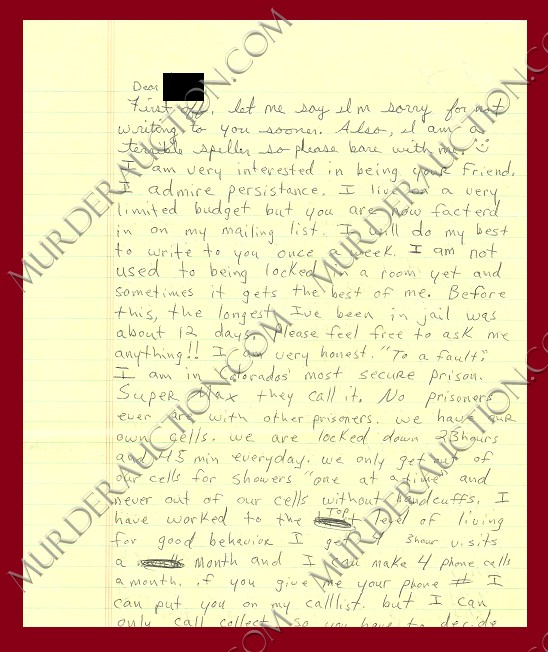 Dear
First off, let me say I'm sorry for not
writing to you sooner. Also, I am a
terrible speller so please bare with me. :)
I am very interested in being your Friend.
I admire persistance. I live on a very
limited budget but you are now facterd
in on my mailing list. I will do my best
to write to you once a week. I am not
used to being locked in a room yet and
sometimes it gets the best of me. Before
this, the longest I've been in jail was
about 12 days. Please feel free to ask me
anything!! I am very honest. "To a fault".
I am in Colorados' most secure prison.
Super Max they call it. No prisoners
ever are with other prisoners. we have our
own cells. we are locked down 23 hours
and 45 min everyday. we only get out of
our cells for showers "one at a time" and
never out of our cells without handcuffs. I
have worked to the Top level of living
for good behavior I get 4 3hour visits
a month and I can make 4 phone calls
a month. if you give me your phone # I
can put you on my calllist. but I can
only call collect so you have to decide
MURDERAUCTION.COM